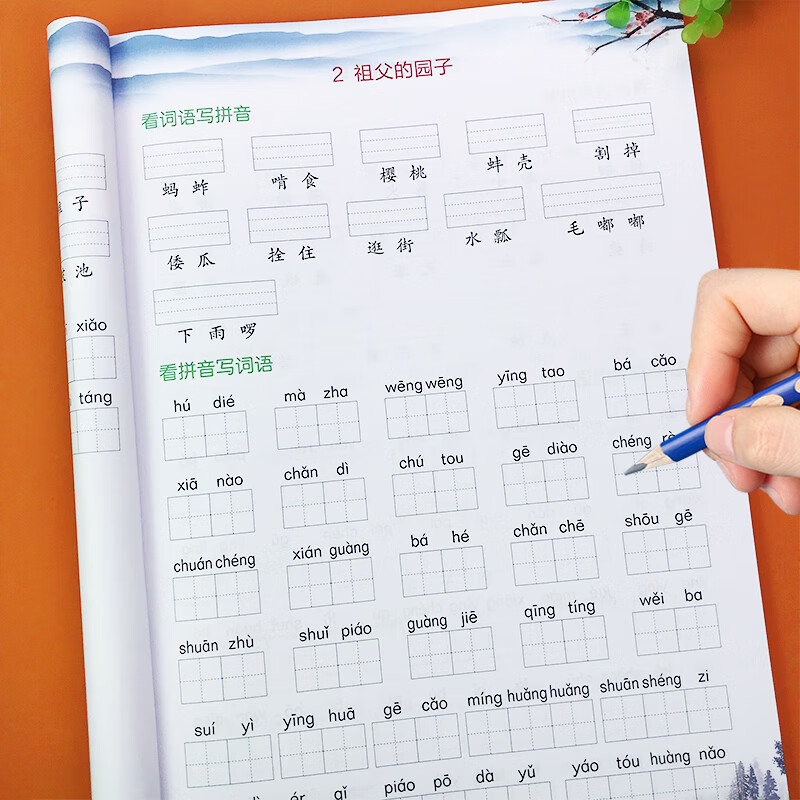 2 祖父的园子
看词语写拼音
蚂蚱 啃食 樱桃 蚌壳 割掉
倭瓜 拴住 逛街 水瓢 毛嘟嘟
下雨啰
看拼音写词语
hú dié mà zha wēng wēng yīng tao bá cǎo
xiā nào chǎn dì chú tou gē diào chéng
chuán chéng xián guàng bá hé chǎn chē shōu gē
shuān zhù shuǐ piáo guàng jiē qīng tíng wěi ba
suí yì yīng huā gē cǎo míng huǎng huǎng shuān shéng zi
piáo pō dà yǔ yáo tóu huàng nǎo
子
池
xiǎo
táng